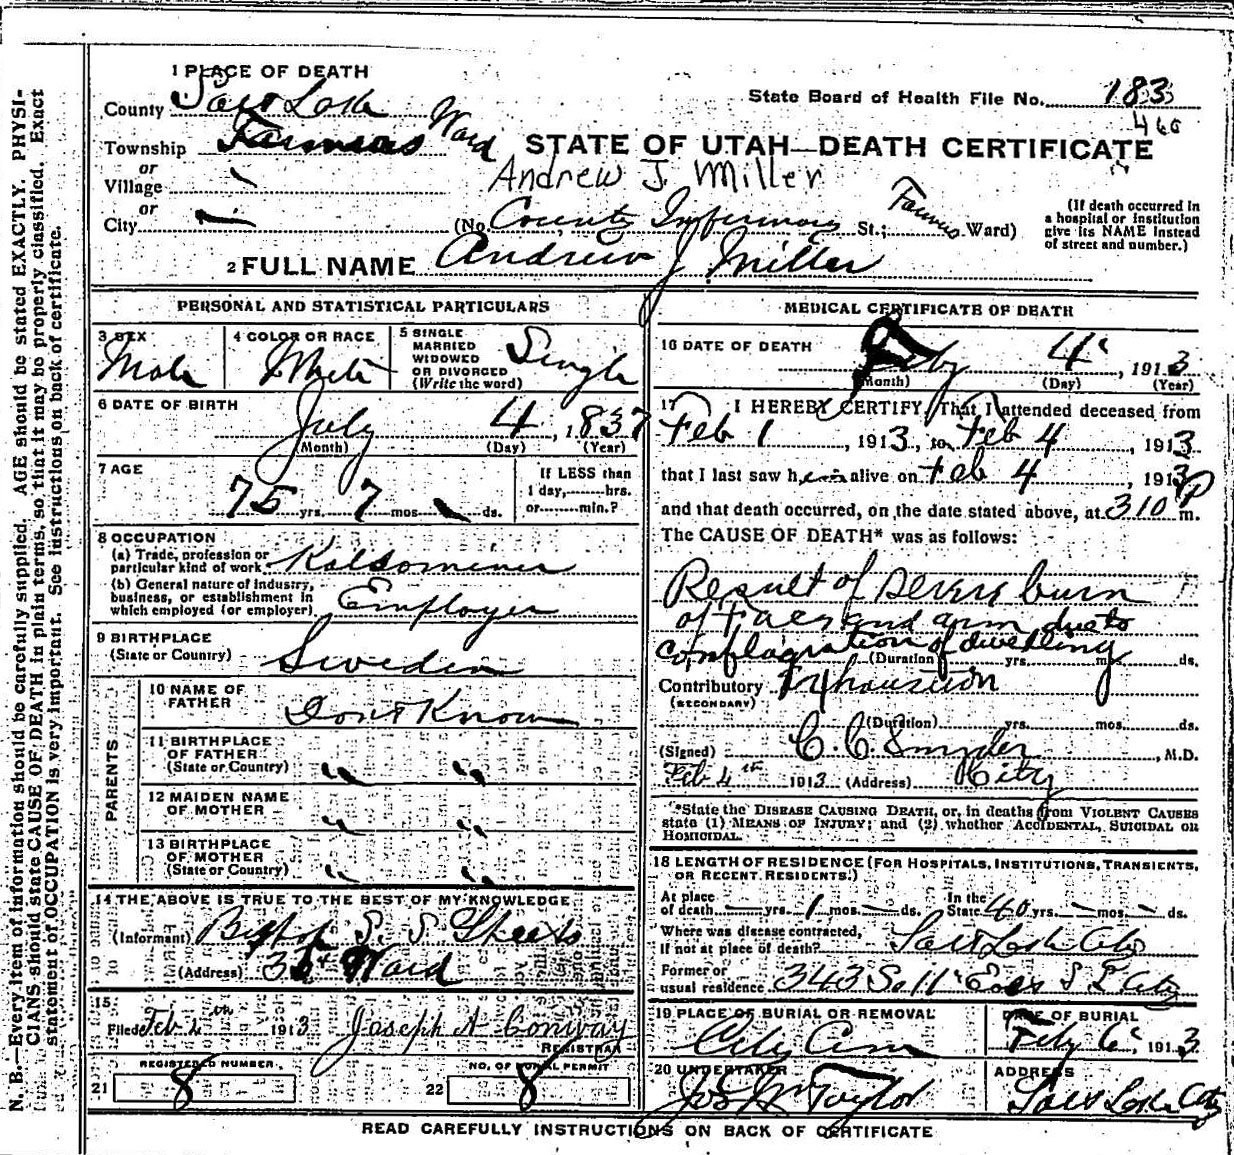 N. B.—Every item of information should be carefully supplied. AGE should be stated EXACTLY. PHYSI-
CIANS should state CAUSE OF DEATH in plain terms, so that it may be properly classified. Exact
statement of OCCUPATION is very important. See instructions on back of certificate.
1 PLACE OF DEATH
County Salt Lake
State Board of Health File No. 183
460
Township Farmers Ward
or
Village
or
City
STATE OF UTAH—DEATH CERTIFICATE
Andrew J. Miller
(No. County Infirmary St.; Farmers Ward)
(If death occurred in
a hospital or institution
give its NAME instead
of street and number.)
2 FULL NAME Andrew J Miller
PERSONAL AND STATISTICAL PARTICULARS
3 SEX
Male
4 COLOR OR RACE
White
5 SINGLE
MARRIED
WIDOWED
OR DIVORCED
(Write the word)
Single
6 DATE OF BIRTH
July 4, 1837
(Month) (Day) (Year)
7 AGE
75 yrs. 7 mos. ds.
If LESS than
1 day, hrs.
or min.?
8 OCCUPATION
(a) Trade, profession or
particular kind of work Kalsominer
(b) General nature of industry,
business, or establishment in
which employed (or employer) Employer
9 BIRTHPLACE
(State or Country) Sweden
PARENTS
10 NAME OF
FATHER Dont Know
11 BIRTHPLACE
OF FATHER
(State or Country) " "
12 MAIDEN NAME
OF MOTHER " "
13 BIRTHPLACE
OF MOTHER
(State or Country) " "
14 THE ABOVE IS TRUE TO THE BEST OF MY KNOWLEDGE
(Informant) Bishop S. S. Sheets
(Address) Ward
15
Filed Feb 1913 Joseph A Conway
REGISTRAR
REGISTERED NUMBER
21 8
NO. OF BURIAL PERMIT
22 8
MEDICAL CERTIFICATE OF DEATH
16 DATE OF DEATH
Feby 4, 1913
(Month) (Day) (Year)
17 I HEREBY CERTIFY, That I attended deceased from
Feb 1, 1913, to Feb 4, 1913
that I last saw him alive on Feb 4, 1913
and that death occurred, on the date stated above, at 310 P m.
The CAUSE OF DEATH* was as follows:
Result of severe burn
of face and arm due to
conflagration of dwelling
(Duration) yrs. mos. ds.
Contributory Exhaustion
(SECONDARY)
(Duration) yrs. mos. ds.
(Signed) C. C. Snyder, M.D.
Feb 4th 1913 (Address) City
*State the DISEASE CAUSING DEATH, or, in deaths from VIOLENT CAUSES
state (1) MEANS OF INJURY; and (2) whether ACCIDENTAL, SUICIDAL OR
HOMICIDAL.
18 LENGTH OF RESIDENCE (FOR HOSPITALS, INSTITUTIONS, TRANSIENTS,
OR RECENT RESIDENTS.)
At place
of death — yrs. 1 mos. — ds.
In the
State 40 yrs. — mos. — ds.
Where was disease contracted,
if not at place of death? Salt Lake City
Former or
usual residence 343 So 11 East S L City
19 PLACE OF BURIAL OR REMOVAL
City Cem
DATE OF BURIAL
Feby 6, 1913
20 UNDERTAKER
Jos Wm Taylor
ADDRESS
Salt Lake City
READ CAREFULLY INSTRUCTIONS ON BACK OF CERTIFICATE